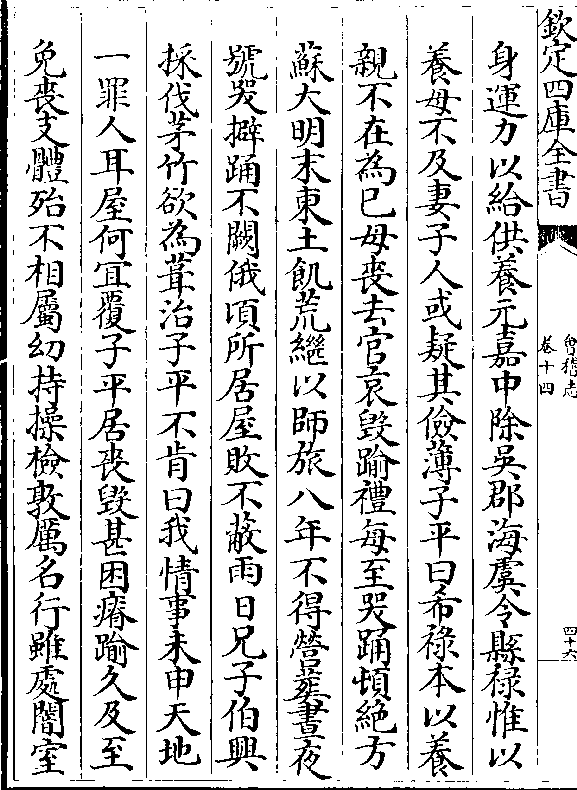 欽定四庫全書
會稽志
卷十四
四十六
身運力以給供養元嘉中除吳郡海虞令縣禄惟以
養母不及妻子人或疑其儉薄子平曰希禄本以養
親不在為已母喪去官哀毀踰禮每至哭踊頓絶方
蘇大明末東土飢荒繼以師旅八年不得營葬晝夜
號哭擗踊不闋俄頃所居屋敗不蔽雨日兄子伯興
採伐茅竹欲為葺治子平不肯曰我情事未申天地
一罪人耳屋何宜覆子平居喪毀甚困瘠踰久及至
免喪支體殆不相屬幼持操檢敦厲名行雖處闇室